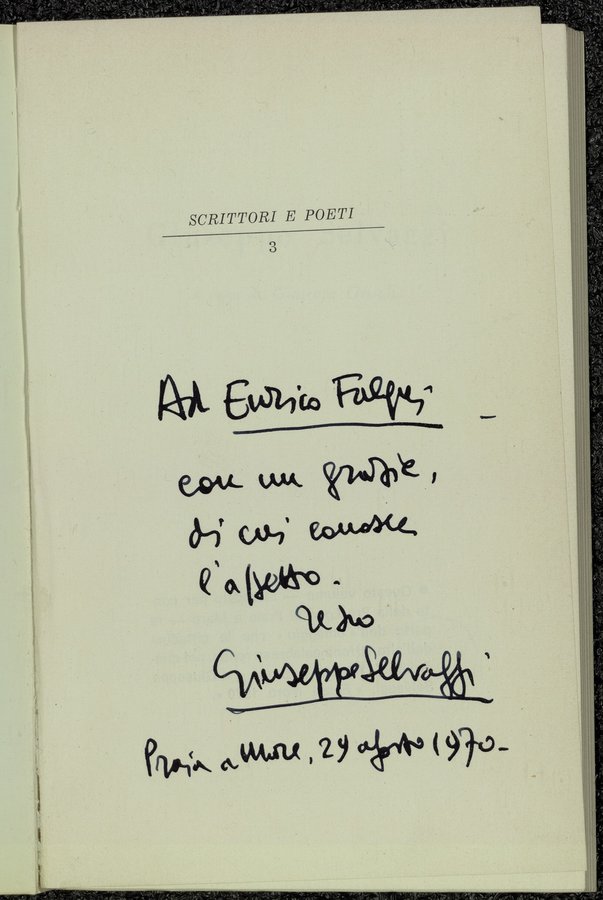 SCRITTORI E POETI
3
Ad Enrico Falqui -
con un grazie,
di cui conosce
l'affetto.
Giuseppe Selvaggi
Praia a Mare, 29 agosto 1970-